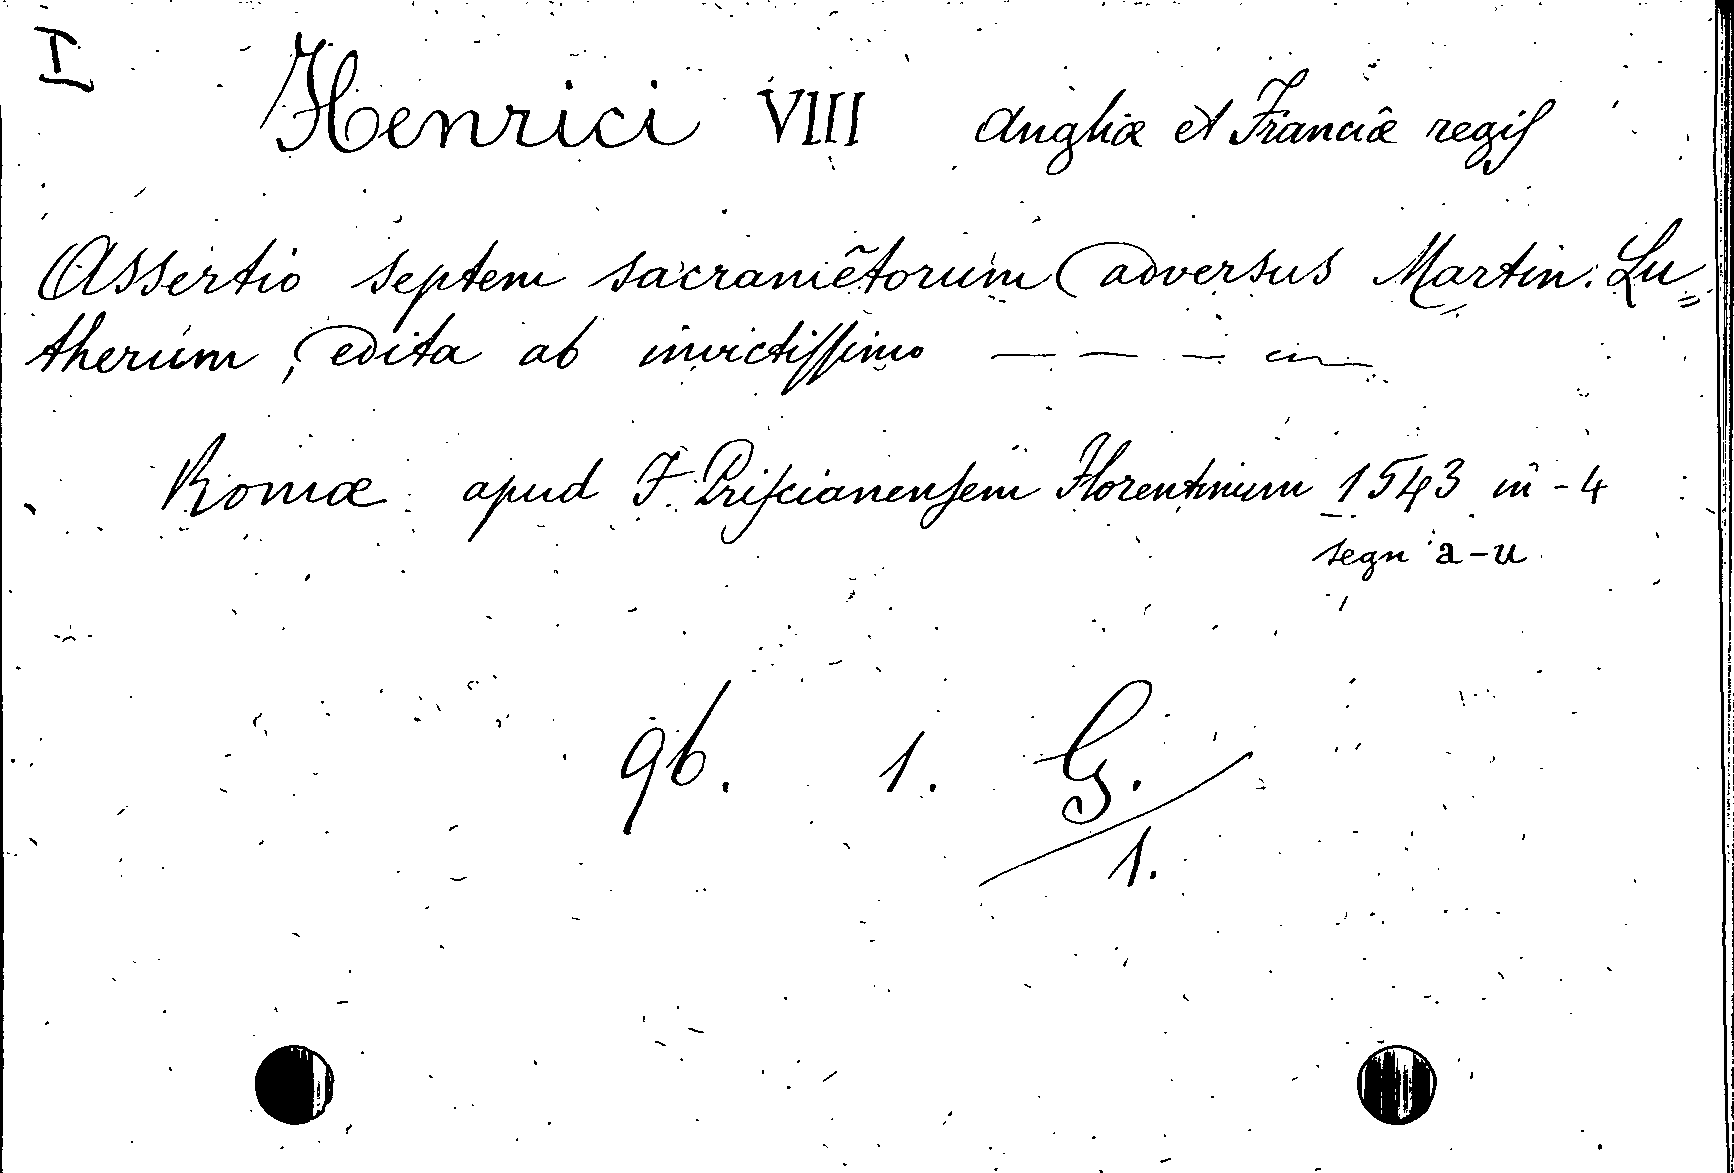 I
Henrici VIII Angliæ et Franciæ regis
Assertio septem sacramētorum adversus Martin. Lu=
therum, edita ab invictissimo — — — 
Romæ apud F. Priscianensem Florentinum 1543 in-4
segn a-u
96. 1. G.
1.